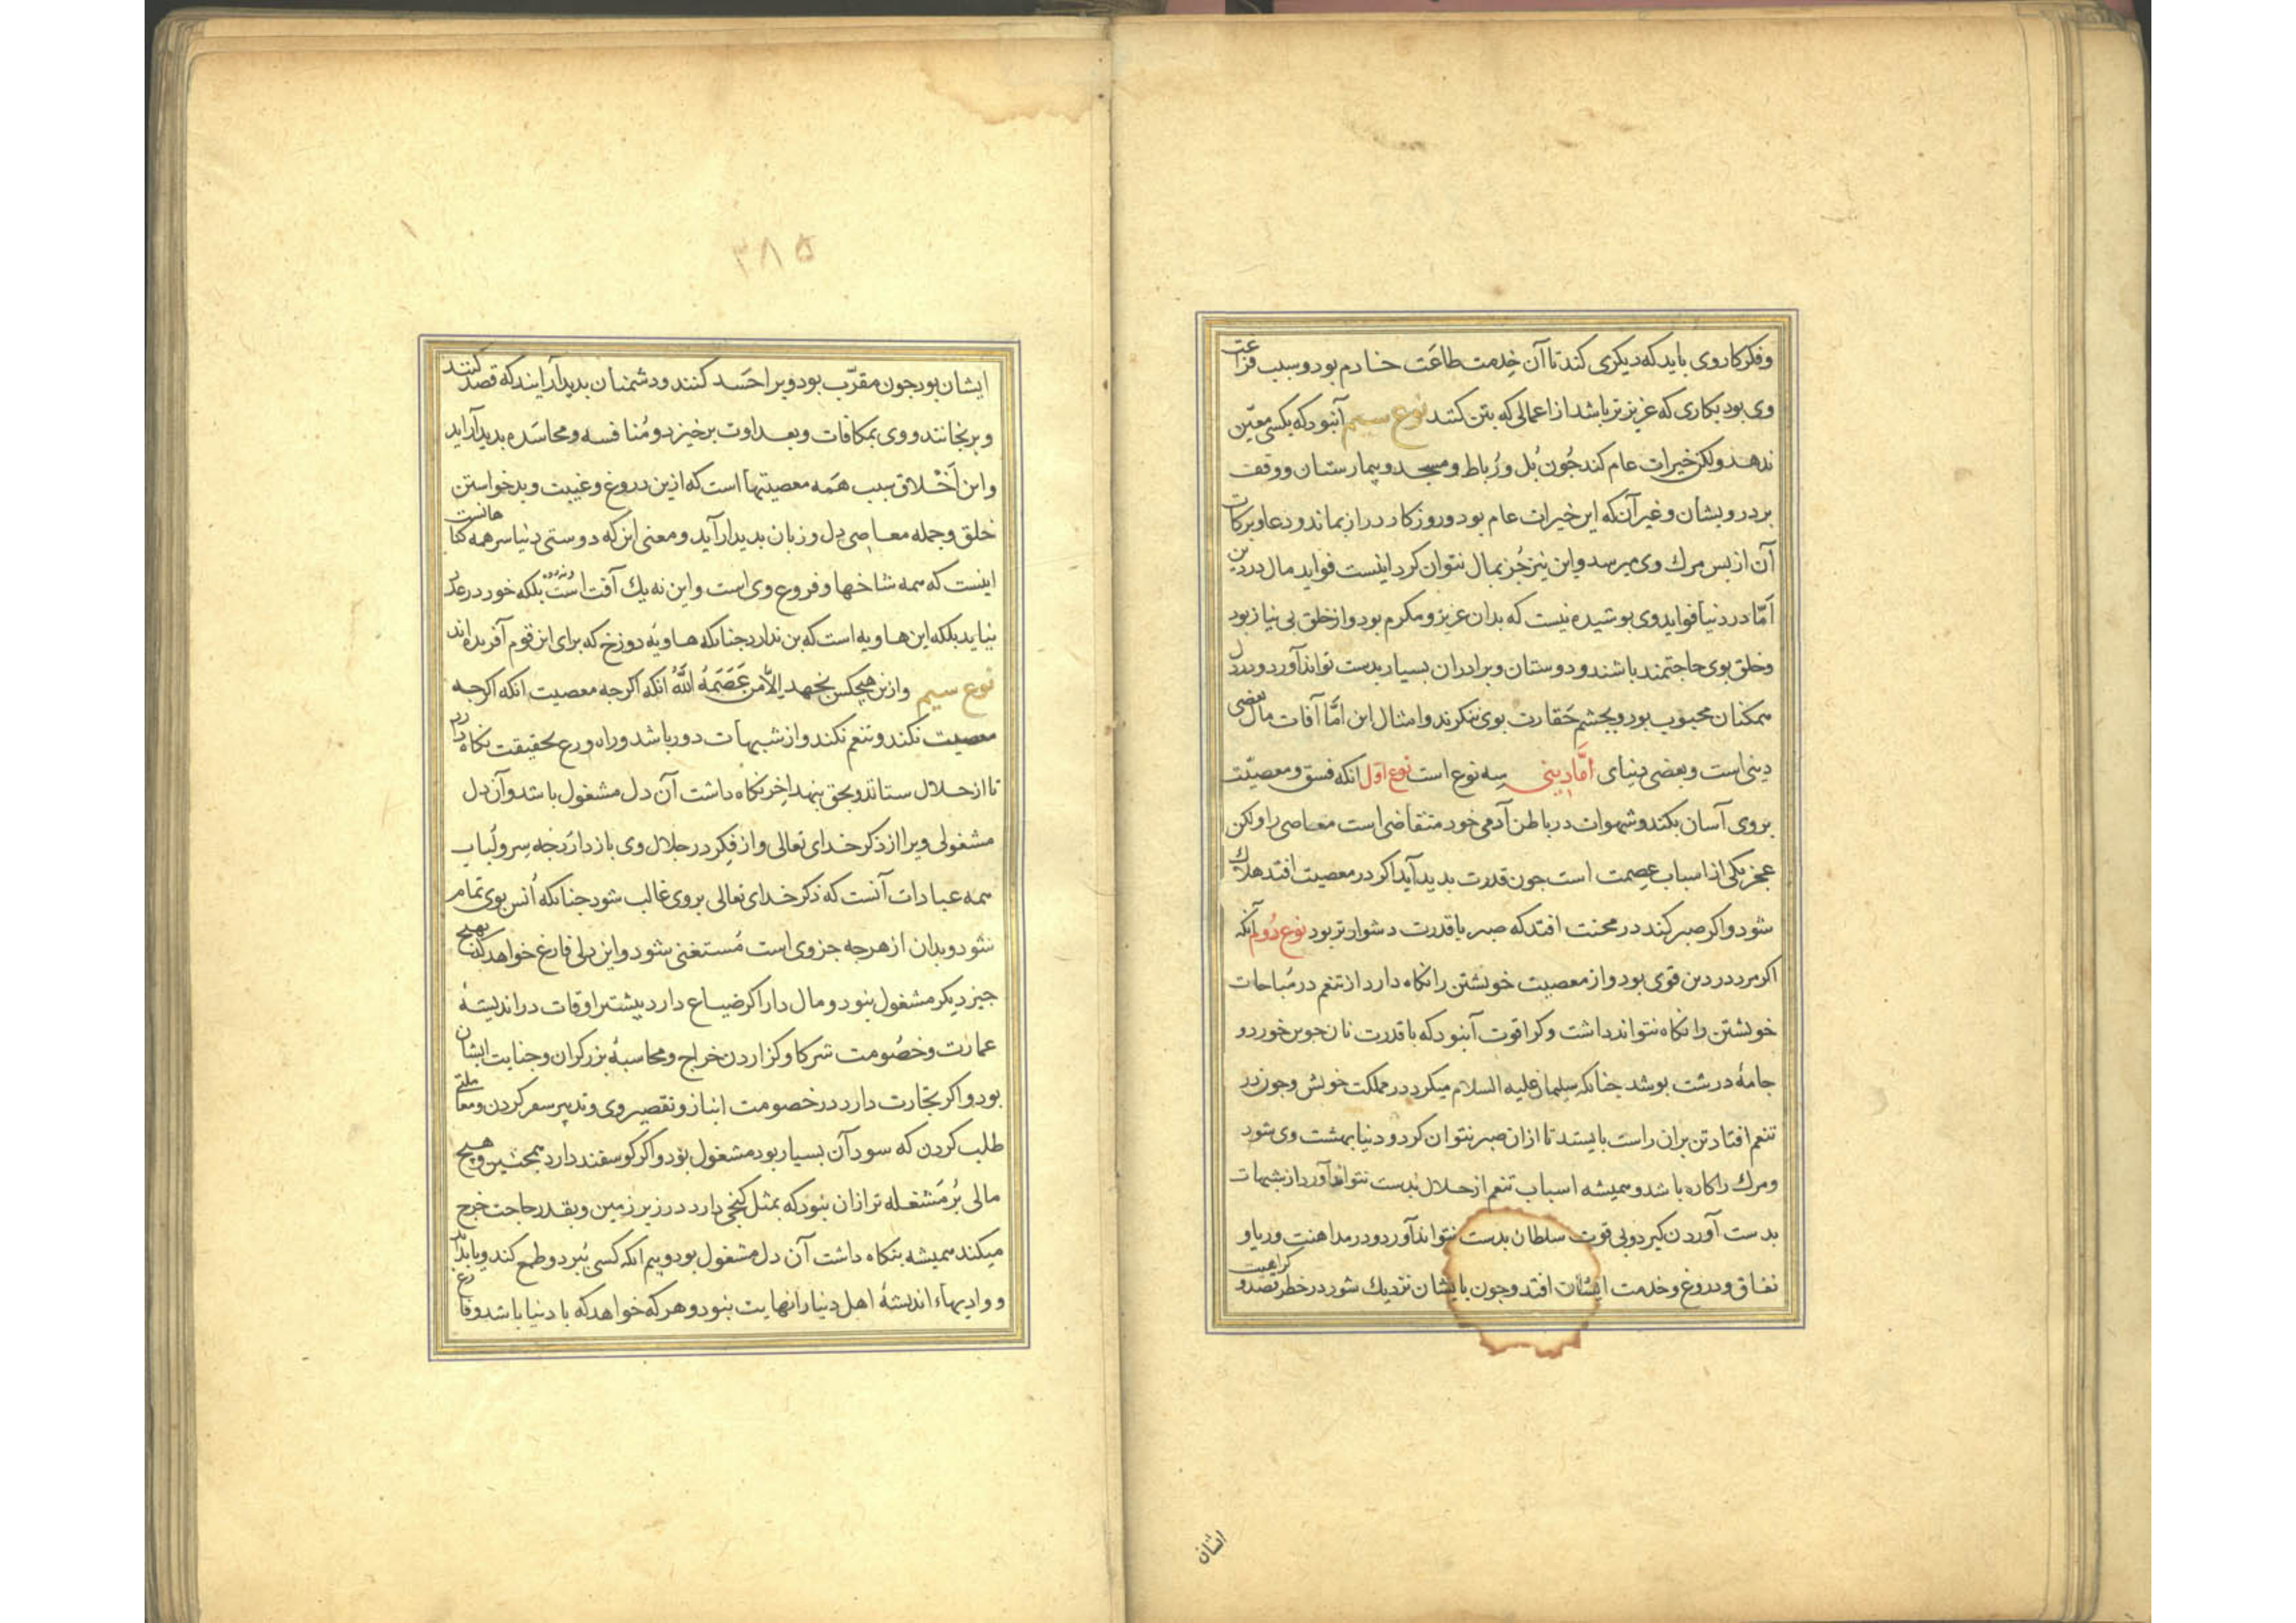 و فکر کار وی باید که دیکری کند تا آن خِدمت طاعَت خادم بود و سبب فراغت
وی بود بکاری که عزیزتر باشد از اعمالی که بتن کنند نوع سیم آنبود که بکسی معیّن
ندهد ولکن خیرات عام کند جُون بُل و رُباط و مسجد و بیمارستان و وقف
بر درویشان و غیر آن که این خیرات عام بود و روزکار دراز بماند و دعا و برکات
آن از بس مرك وی میرسد و این نیز جُز بمال نتوان کرد اینست فواید مال در دین
اَمّا در دنیا فواید وی بوشیده نیست که بدان عزیز و مکرم بود و از خلق بی نیاز بود
و خلق بوی حاجتمند باشند و دوستان و برادران بسیار بدست تواند آورد و در دل
همکنان محبوب بود و بجشم حَقارت بوی ننکرند و امثال این اَمّا آفات مال بعضی
دینی است و بعضی دنیای اَمّا دینی سه نوع است نوع اوّل انکه فسق و معصیّت
بر وی آسان بکند و شهوات در باطن آدمی خود متقاضی است معاصی را ولکن
عجز یکی از اسباب عِصمت است جون قدرت بدید آید اکر در معصیت افتد هلاك
شود و اکر صبر کند در محنت افتد که صبر با قدرت دشوارتر بود نوع دُوم آنکه
اکر مرد در دین قوی بود و از معصیت خویشتن را نکاه دارد از تنعم در مُباحات
خویشتن را نکاه نتواند داشت و کرا قوت آنبود که با قدرت نان جوین خورد و
جامهٔ درشت بوشد جنانکه سلیمان علیه السلام میکرد در مملکت خویش و جون در
تنعم افتاد تن بران راست بایستد تا ازان صبر نتوان کرد و دنیا بهشت وی شود
و مرك را کاره باشد و همیشه اسباب تنعم از حلال بدست نتواند آورد از شبهات
بدست آوردن کیرد و بی قوت سلطان بدست نتواند آورد و در مداهنت و ریا و
نفاق و دروغ و خدمت ایشان افتد و جون بایشان نزدیك شود در خطر قصد و کراهیت
ایشان
۳۸۵
ایشان بود جون مقرّب بود ویرا حَسد کنند و دشمنان بدیدار ایند که قصد کنند
و برنجانند و وی بمکافات و بعداوت برخیزد و مُنافسه و محاسَده بدیدار اید
و این اَخْلاق سبب همَه معصیتها است که ازین دروغ و غیبت و بدخواستن
خلق و جمله معاصی دل و زبان بدیدار آید و معنی این که دوستی دنیا سر همه کناهانست
اینست که همه شاخها و فروع وی است و این نه یك آفت است بلکه خود در عدد
نیاید بلکه این هاویه است که بن ندارد جنانکه هاویهٔ دوزخ که برای این قوم آفریده اند
نوع سیم و ازین هیچکس نجهد اِلاّ من عَصَمَهُ اللّٰهُ انکه اکرجه معصیت انکه اکرجه
معصیت نکند و تنعم نکند و از شبهات دور باشد و راه ورع بحقیقت نکاه دارد
تا از حلال ستاند و بحق بنهد اخر نکاه داشت آن دل مشغول باشد و آن دل
مشغولی ویرا از ذکر خدای تعالی و از فِکر در جلال وی بازدارَد جه سِر و لُباب
همه عبادات آنست که ذکر خدای تعالی بر وی غالب شود جنانکه اُنس بوی تمام
شود و بدان از هرجه جز وی است مُستغنی شود و این دلی فارغ خواهد که بهیچ
جیز دیکر مشغول نبود و مال دار اکر ضیاع دارد بیشتر اوقات در اندیشهٔ
عمارت و خصُومت شرکا و کزاردن خراج و محاسبهٔ برزکران و جنایت ایشان
بود و اکر تجارت دارد در خصومت انباز و تقصیر وی و تدبیر سفر کردن و معاملتی
طلب کردن که سود آن بسیار بود مشغول بوَد و اکر کوسفند دارد همجنین و هیچ
مالی بُرمَشغله تر ازان نبود که بمثل کنجی دارد در زیر زمین و بقدر حاجت خرج
میکند همیشه بنکاه داشت آن دل مشغول بود و بیم انکه کسی بُبرد و طمع کند و یا بداند
و وادیهاء اندیشهٔ اهل دنیا را نهایت نبود و هرکه خواهد که با دنیا باشد و فارغ